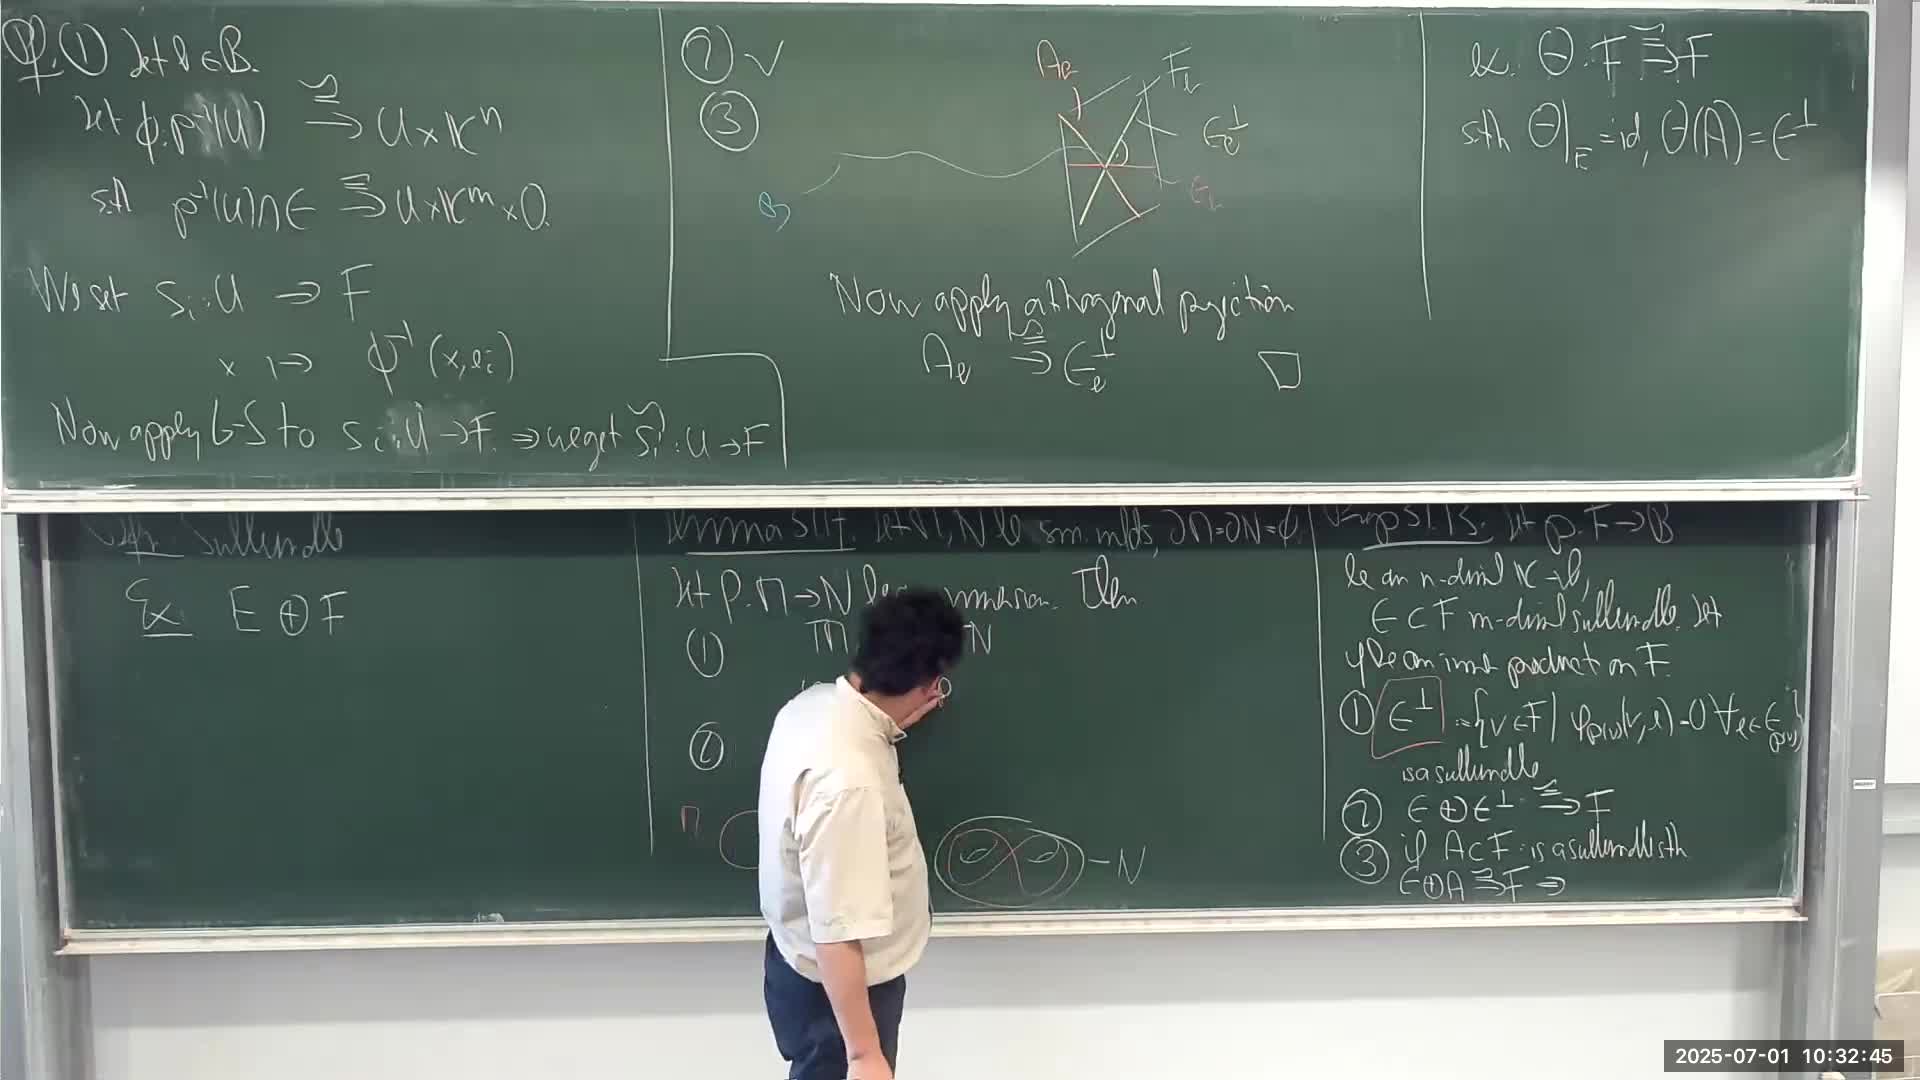 Pf. ① Let b ∈ B.
Let φ: p⁻¹(U) ≅→ U × Kⁿ
s.th p⁻¹(U) ∩ E ≅→ U × Kᵐ × 0.
We set sᵢ: U → F
x ↦ φ⁻¹(x, eᵢ)
Now apply G-S to sᵢ: U → F. ⇒ we get s̃ᵢ: U → F
② ✓
③
A_b
F_b
E_b^⊥
E_b
B
Now apply orthogonal projection
A_b ≅→ E_b^⊥
□
ex. Θ: F ≅→ F
s.th Θ|_E = id, Θ(A) = E^⊥
Def. Subbundle
Ex E ⊕ F
Lemma 51.14. Let M, N be sm. mfds, ∂M = ∂N = ∅
Let p: M → N be immersion. Then
①
TM
N
②
M
N
Prop 51.13. Let p: F → B
be an n-diml K-vb,
E ⊂ F m-diml subbundle. Let
φ be an inner product on F.
① E^⊥ := {v ∈ F | φ_p(v)(v, e) = 0 ∀ e ∈ E_p(v)}
is a subbundle
② E ⊕ E^⊥ ≅→ F
③ if A ⊂ F is a subbundle s.th
E ⊕ A ≅→ F ⇒
2025-07-01 10:32:45